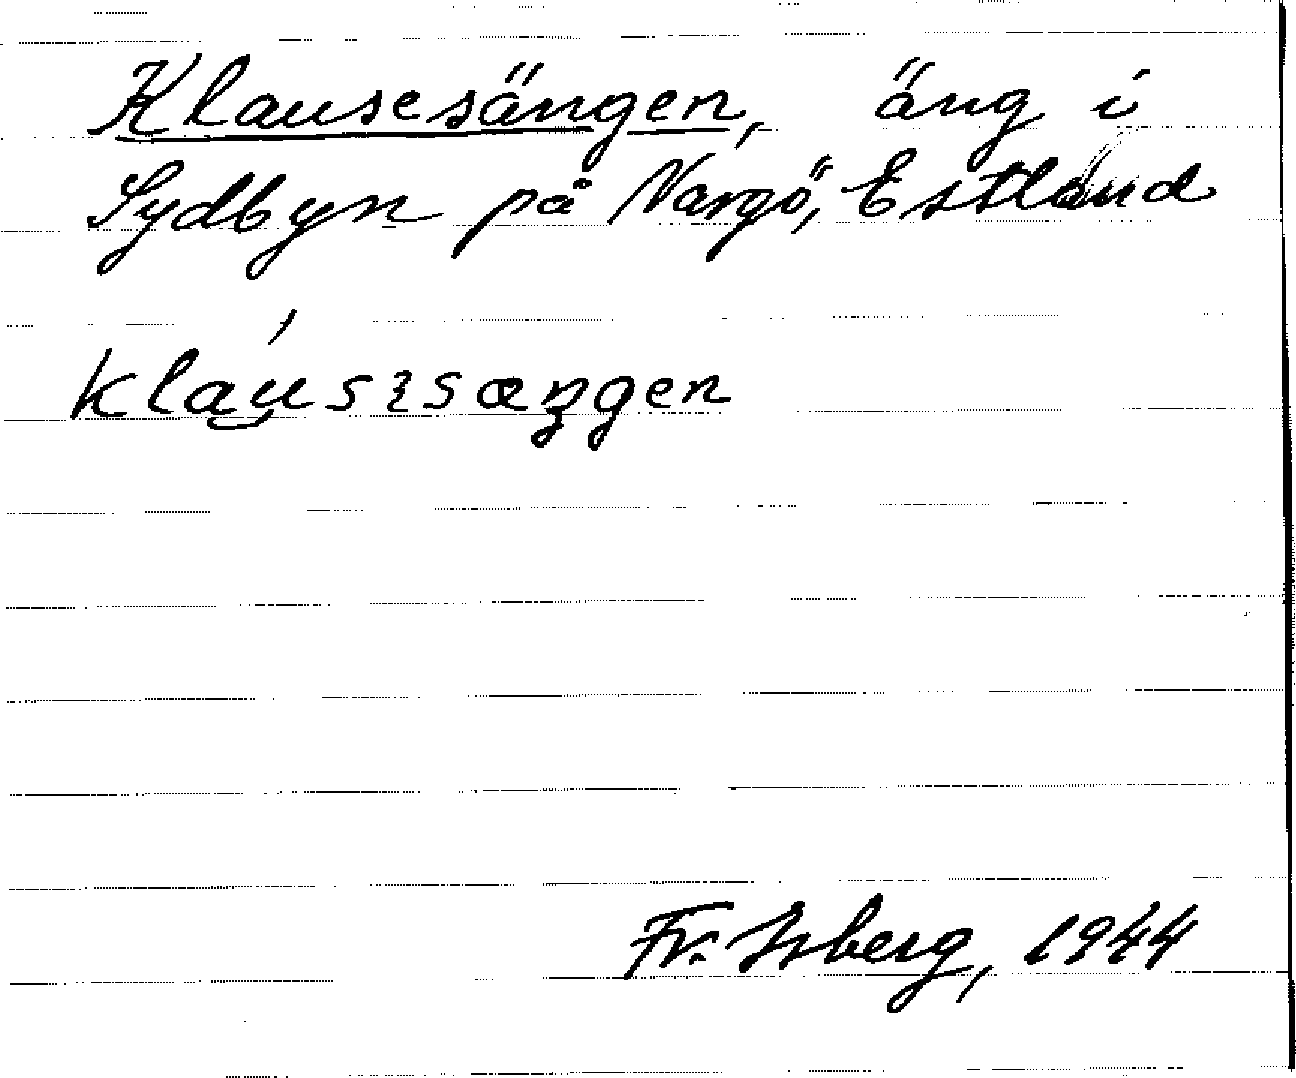 Klausesängen, äng i
Sydbyn på Nargö, Estland
klau̯sɛsæŋgen
Fr. Isberg, 1944